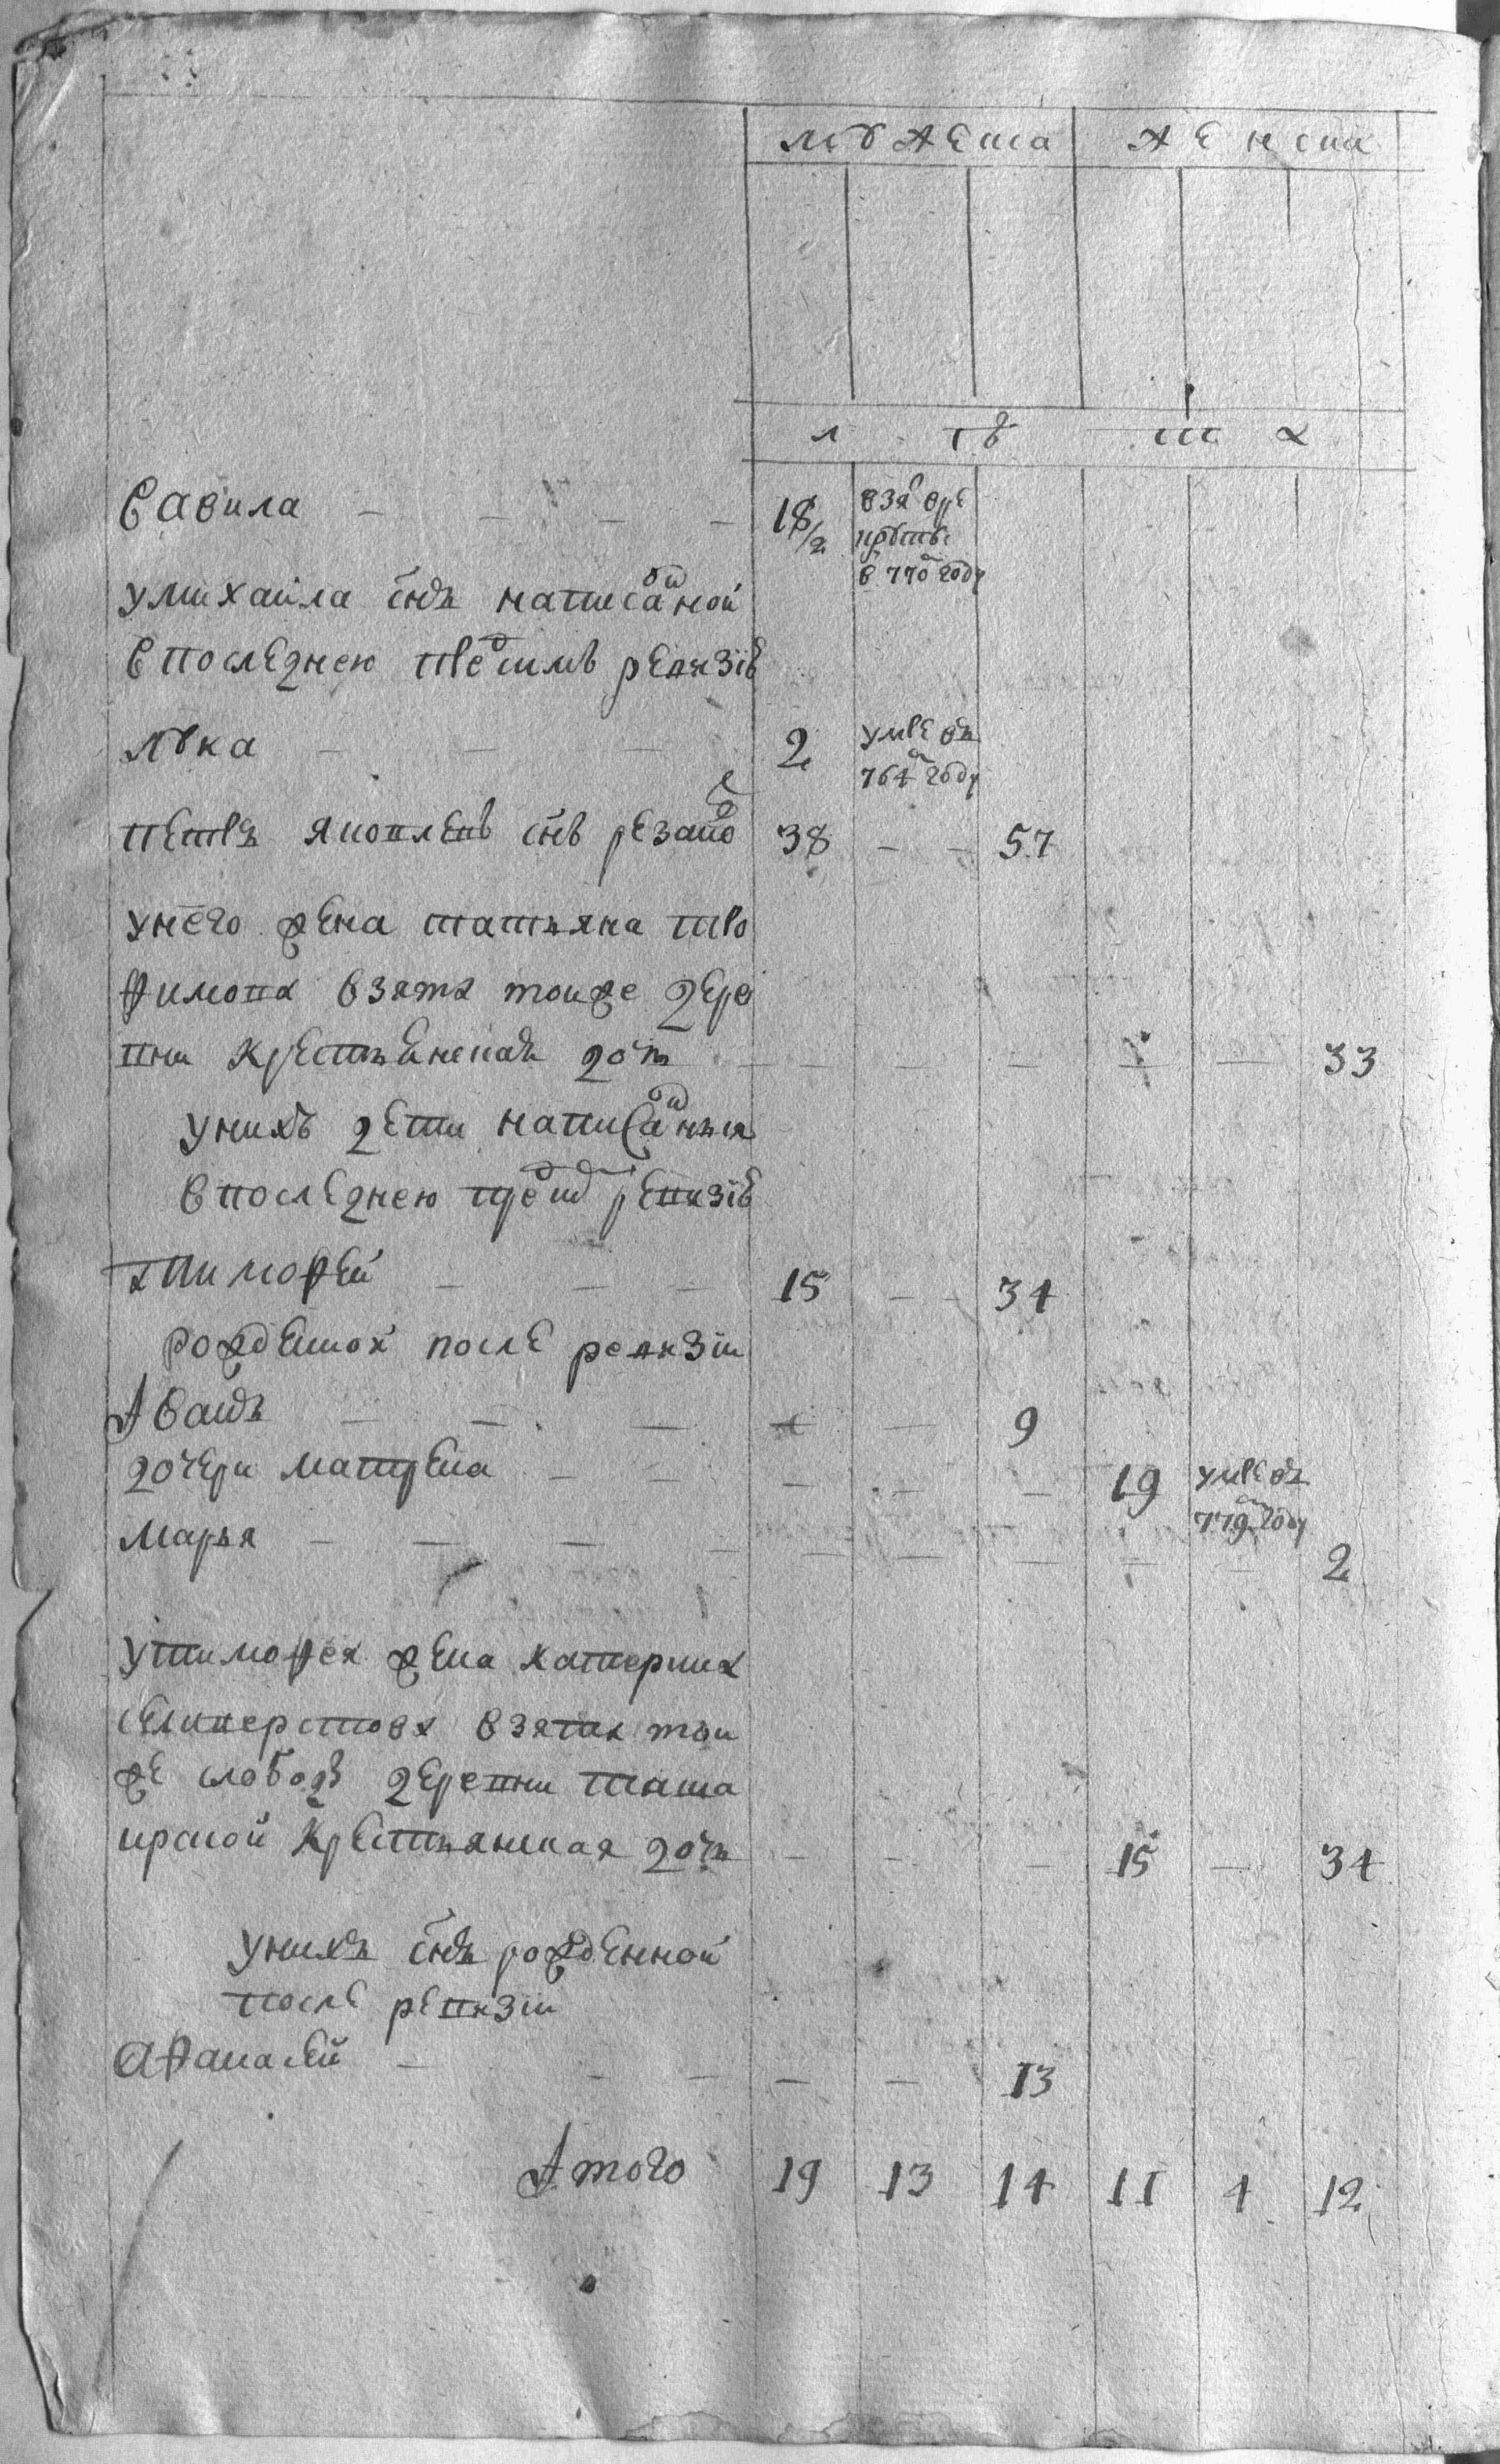 мужеска женска
л ѣ т а
Савила 18/2 взя в ре
круты
в 770 году
у михаила снъ написаной
в последнею пре сим ревизiю
Лука 2 умре въ
764 году
петръ яковлевъ снъ резано 38 57
у него жена татьяна тро
фимова взята тоиже дере
вни крестьянская доч 33
у нихъ дети написанныя
в последнею пред сим ревизiю
тимофеи 15 34
рожденои после ревизiи
Иванъ 9
дочери матрена 19 умре въ
779 году
марья 2
у тимофея жена катерина
селиверстова взята тои
же слободы деревни
крестьянская доч 15 34
у нихъ снъ рожденнои
после ревизiи
Афанасеи 13
Итого 19 13 14 11 4 12